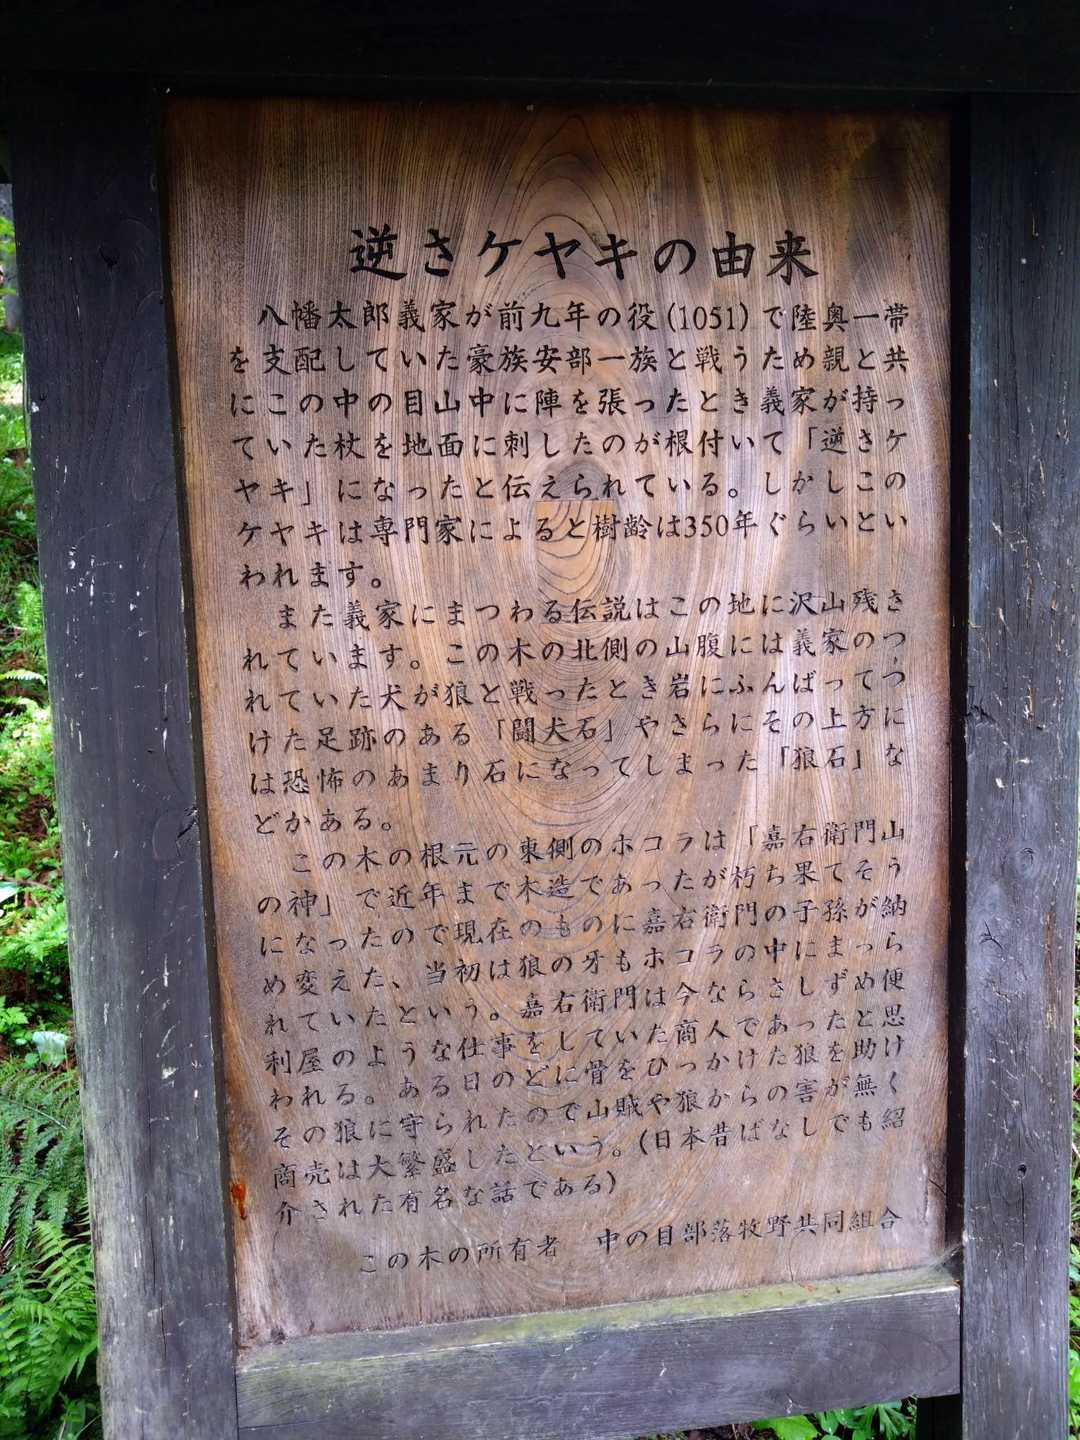 逆さケヤキの由来
八幡太郎義家が前九年の役(1051)で陸奥一帯
を支配していた豪族安部一族と戦うため親と共
にこの中の目山中に陣を張ったとき義家が持っ
ていた杖を地面に刺したのが根付いて「逆さケ
ヤキ」になったと伝えられている。しかしこの
ケヤキは専門家によると樹齢は350年ぐらいとい
われます。
また義家にまつわる伝説はこの地に沢山残さ
れています。この木の北側の山腹には義家のつ
れていた犬が狼と戦ったとき岩にふんばってつ
けた足跡のある「闘犬石」やさらにその上方に
は恐怖のあまり石になってしまった「狼石」な
どがある。
この木の根元の東側のホコラは「嘉右衛門山
の神」で近年まで木造であったが朽ち果てそう
になったので現在のものに嘉右衛門の子孫が納
め変えた、当初は狼の牙もホコラの中にまつら
れていたという。嘉右衛門は今ならさしずめ便
利屋のような仕事をしていた商人であったと思
われる。ある日のどに骨をひっかけた狼を助け
その狼に守られたので山賊や狼からの害が無く
商売は大繁盛したという。(日本昔ばなしでも紹
介された有名な話である)
この木の所有者　中の目部落牧野共同組合